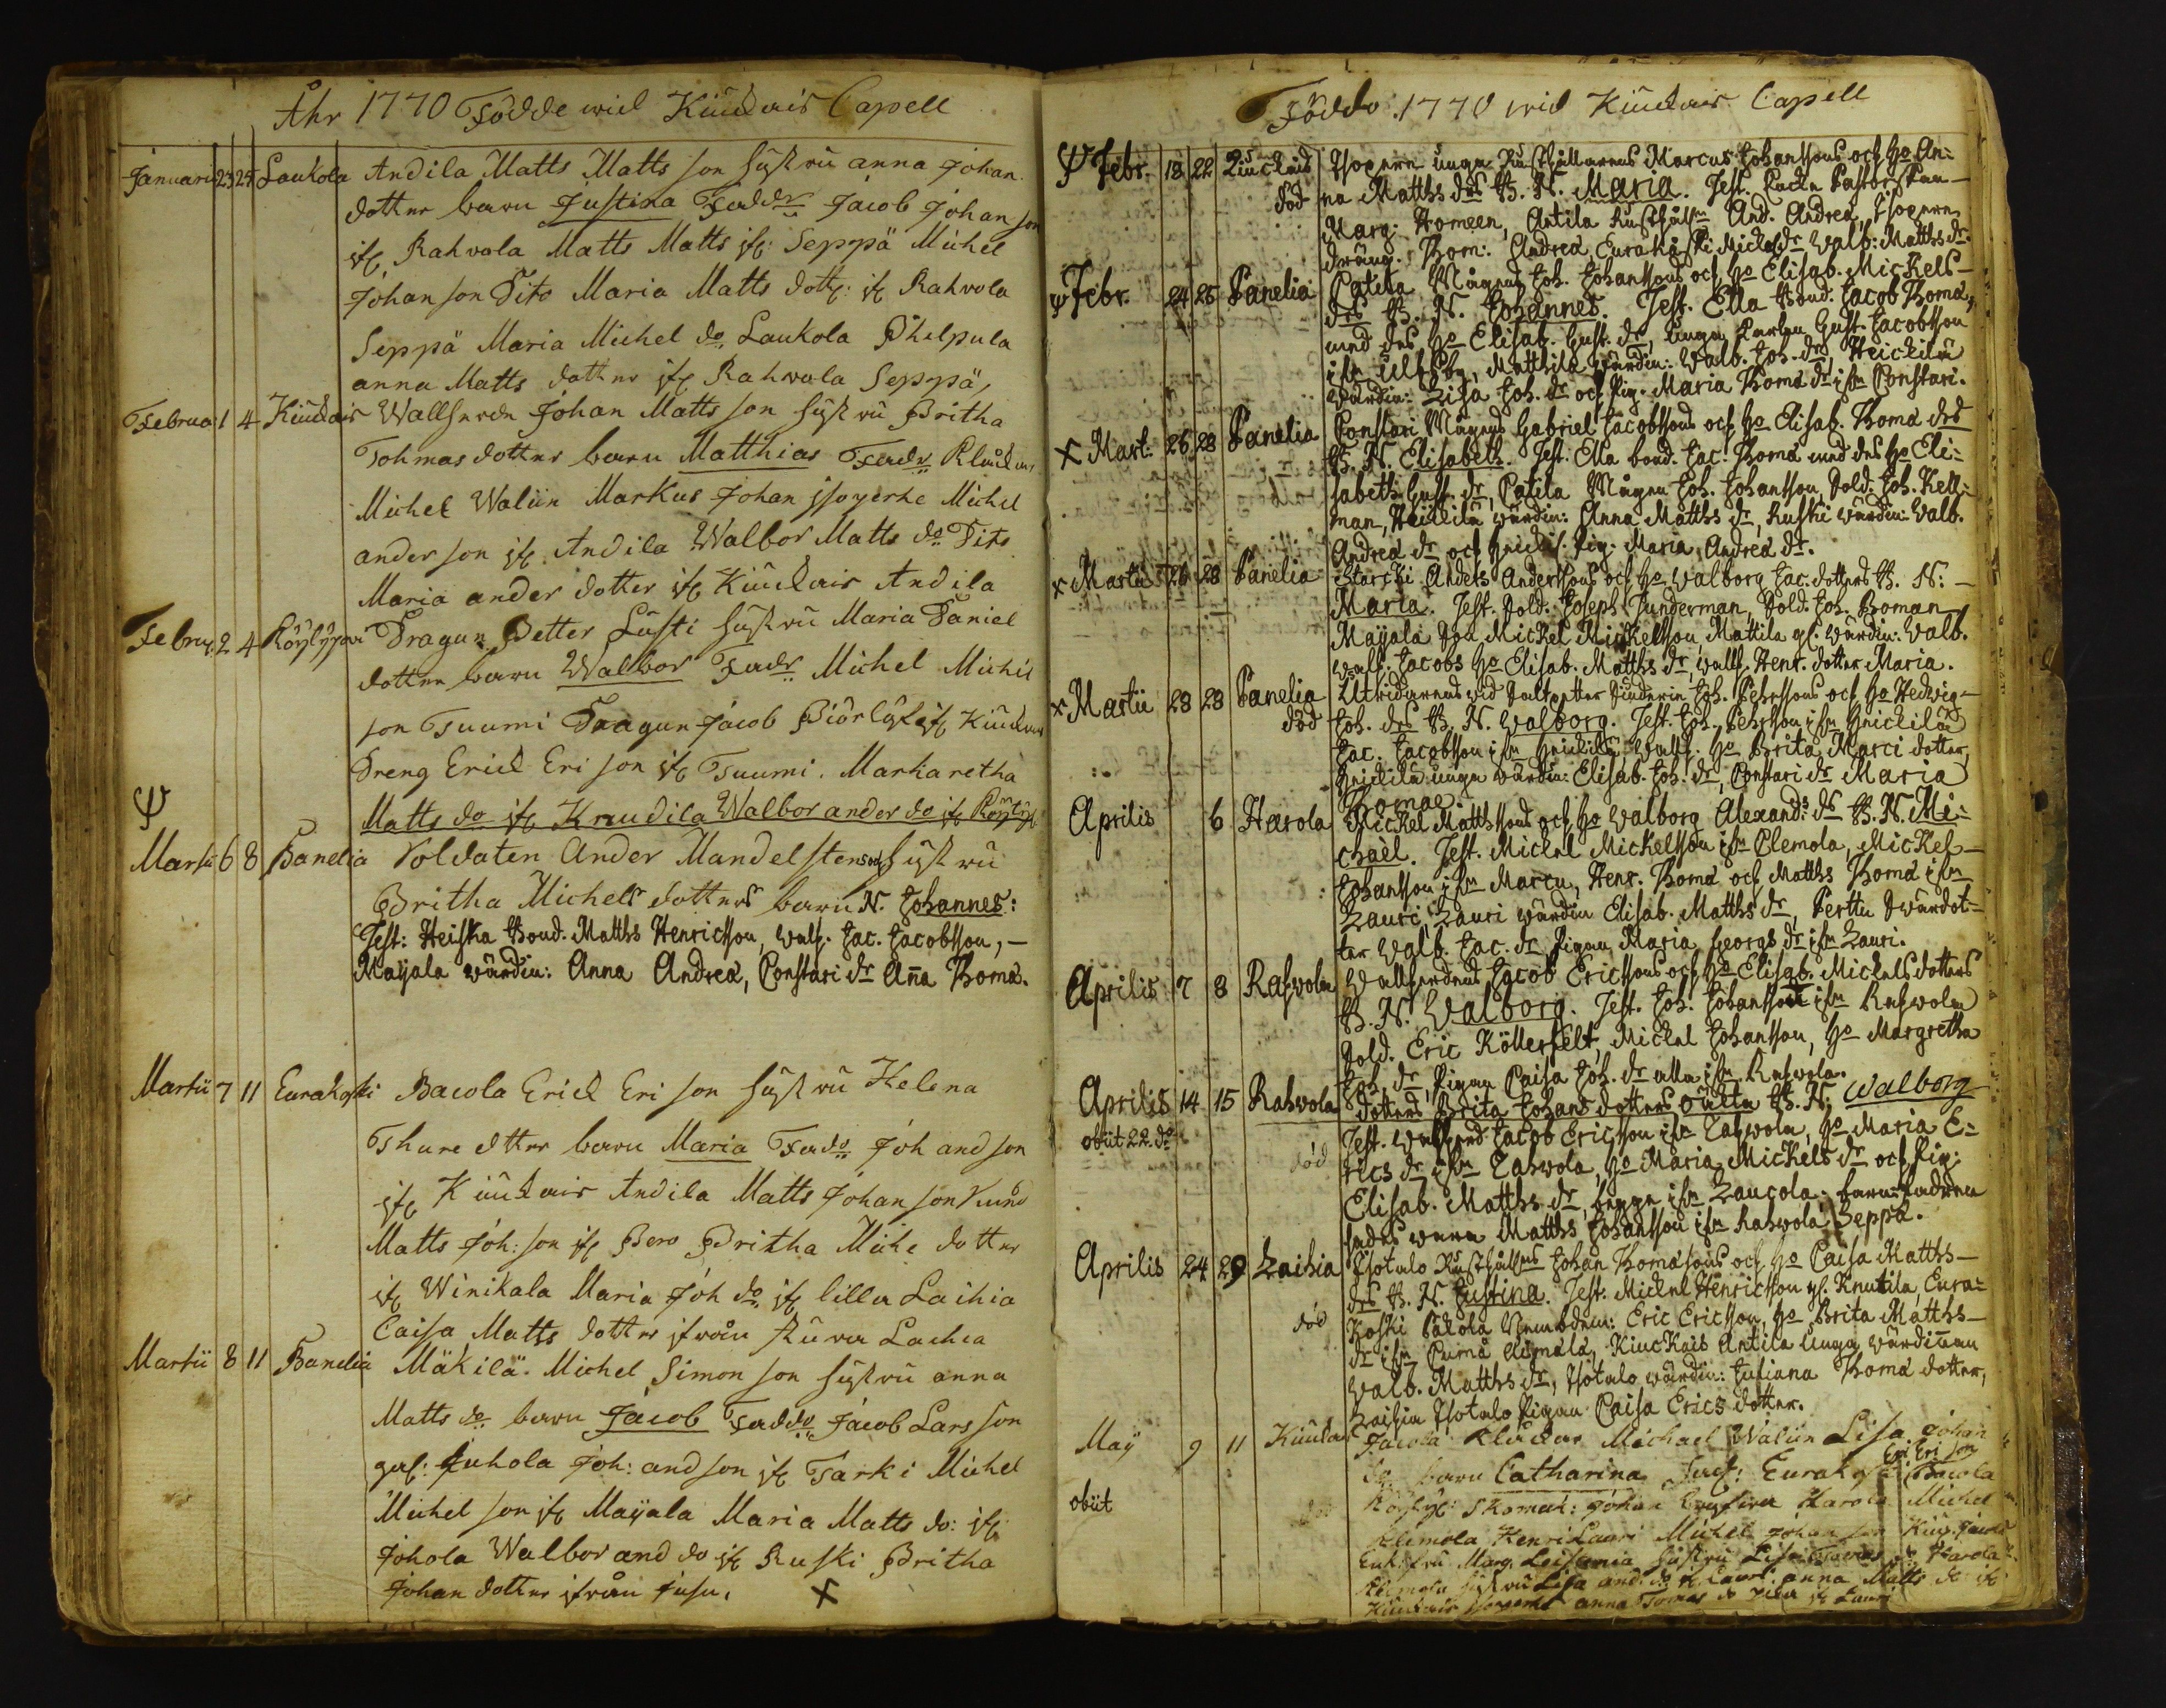 Åhr 1770 Födde wid Kiuckais Capell
Januari 23 25 Laukola Andila Matts Matts son hustru anna Johan
dotter barn Justina Faddr Jacob Johan son
ifr Rahvola Matts Matts ifr Seppä Michel
Johan son Dito Maria Matts dott: ifr Rahvola
Seppä Maria Michel do Laukola Philpula
anna Matts dotter ifr Rahvola Seppä,
Februa 1 4 Kiuckais Johan Matts son hustru Britha
Tohmas dotter barn Matthias Fadr Kluckar
Michel Waliin Markus Johan Isoperhe Michel
ander son ifr Andila Walbor Matts do Dito
Maria ander dotter ifr Kiuckais Andila
Februa 2 4 Dragun Petter Lusti hustru Maria Daniel
dotter barn Walbor Fadr Michel Michel
son Tuumi Dragun Jacob ifr Kiuckais
Dreng Erick Eri son ifr Tuumi. Markaretha
Matts do ifr Knudila Walbor ander do ifr
Ψ
Martii 6 8 Panelia Soldaten Ander Mandelstens hustru
Britha Michels dotters barn N. Johannes:
Test: Heiska Bond. Matths Henricsson, walh. Jac. Jacobsson, –
Mayala wärdin: Anna Andreæ, Constari dr Aña Thomæ.
Martii 7 11 Eurakoski Bacola Erick Eri son hustru Helena
Thure dtter barn Maria Fadr Joh and son
ifr Kiuckais Andila Matts Johan son
Matts Joh: son ifr Pero Britha Miche dotter
ifr Winikala Maria Joh do ifr lilla Laihia
Caisa Matts dotter ifrån stura Laihia
Martii 8 11 Panelia Mäkilä. Michel Simon son hustru anna
Matts do barn Jacob Faddr Jacob Lars son
Juhola Joh: and son ifr Tarki Michel
Michel son ifr Mayala Maria Matts do: ifr
Johola Walbor and do ifr Ruski Britha
Johan dotter ifrån Jusu. X
Födde 1770 wid Kiuckais Capell
Ψ Febr. 18 22 Kiuckais Isopere unga Rusthållarens Marcus Johanssons och Ho An:
död na Matths drs B. N. Maria. Test.
Marg: Homeen, Antila And. Andreæ, Isopere
dräng. Thom: Andreæ, Eurakoski Mickels dr Walb: Matths dr.
Ψ Febr. 24 25 Panelia Patila Mågens Joh. Johanssons och Ho Elisab. Mickels –
drs B. N. Johannes. Test. Ella Bond. Jacob Thomæ,
med des Ho Elisab. Gust. dr, unga Gust. Jacobsson
ifrn Ulfsby, Matthila wärdin: Walb. Joh. dr, Heickilä
wärdin: Lisa Joh. dr och Pig. Maria Thomæ dr ifrn Constari.
X Mart: 26 28 Panelia Constari Mågens Gabriel Jacobssons och Ho Elisab. Thomæ drs
B. N. Elisabeth. Test. Ella bond. Jac. Thomæ med des Ho Eli:
sabeth Gust. dr, Patila Mågen Joh. Johansson, Sold. Joh. Kell:
man, Heickilä wärdin: Anna Matths dr, Ruski wärdin: Valb.
Andreæ dr och Pig: Maria Andreæ dr.
X Martii 26 28 Panelia Starcki Anders Anderssons och Ho Walborg Jac. dotters B. N: –
Maria. Test. Sold: Joseph Sunderman, Sold. Joh. Boman
Mayala Son Mickel Mickelsson, Mattila wärdin: Valb.
Walh. Jacobs Ho Elisab. Matths dr, Henr. dotter Maria.
X Martii 28 28 Panelia Joh. Pehrssons och Ho Hedvig –
död Joh. drs B. N. Walborg. Test. Joh. Pehrsson ifrn Heickilä
Jac. Jacobsson ifrn Ho Brita Marci dotter,
unga wärdin: Elisab. Joh. dr, Constari dr Maria
Thomæ
Aprilis 6 Harola Mickel Matthssons och Ho Walborg Alexand: drs B. N. Mi:
chaël. Test. Mickel Mickelsson ifrn Clemola, Mickel –
Johansson ifrn Marcu, Henr. Thomæ och Matths Thomæ ifrn
Lauri, Lauri wärdin Elisab. Matths dr, Perttu Swärdot:
ter Walb. Jac. dr Pigan Maria Georgs dr ifrn Lauri.
Aprilis 7 8 Rahvola Jacob Ericssons och Ho Elisab. Mickelsdotters
B. N. Walborg. Test. Joh. Johansson ifrn Rahvola
Sold. Eric Köllerfelt, Mickel Johansson, Ho Margretha
Joh. dr, Pigan Caisa Joh. dr alla ifrn Rahvola.
Aprilis 14 15 Rahvola dotters Brita Johans dotters oäkta B. N: Walborg
obiit 22. do Test. Jacob Ericsson ifrn Rahvola, Ho Maria E:
död rics dr ifrn Rahvola, Ho Maria Mickels dr och Pig:
Elisab. Matths dr, begge ifrn Laucola.
Matths Johansson ifrn Rahvola Seppä.
Aprilis 24 29 Laihia Isotalo Johan Thomæsons och Ho Caisa Matths –
drs B. N. Justina. Test: Mickel Henricsson Knutila, Eura:
död koski Pakola Eric Ericsson, Ho Brita Matths –
dr ifrn Kiuckais Antila unga wärdiñan
Walb. Matths dr, Isotalo wärdin: Juliana Thomæ dotter,
Laihia Isotalo Pigan Caisa Erics dotter.
May 9 11 Kiuckais Jacola Kluckar Michael Waliin Lisa Johan
do barn Catharina Eurakoski Eri Eri son Bacola
obiit Johan Harola Michel
Klemola Henri Lauri Michel Johan son
Marg. Leisania hustru Lisa Harola
Klemola hustru Lisa and: do ifr Lauri: anna Matts do ifr
Kiuckais Isoperhe anna Tomas do ifr Lauri